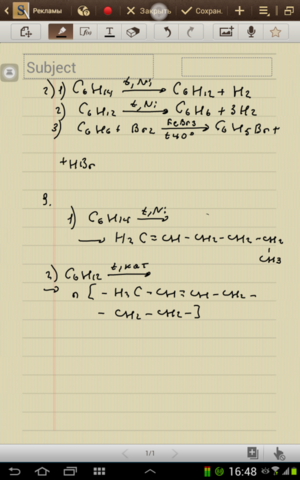 Рекламы
Закрыть
Сохран.
Subject
2) 1) C6H14 t,Ni→ C6H12 + H2
2) C6H12 t,Ni→ C6H6 + 3H2
3) C6H6 + Br2 FeBr3→ t40° C6H5Br +
+ HBr
3.
1) C6H14 t,Ni→
→ H2C = CH - CH2 - CH2 - CH2
CH3
2) C6H12 t,кат→
→ n [ - H2C - CH = CH - CH2 -
- CH2 - CH2 - ]
1/1
16:48